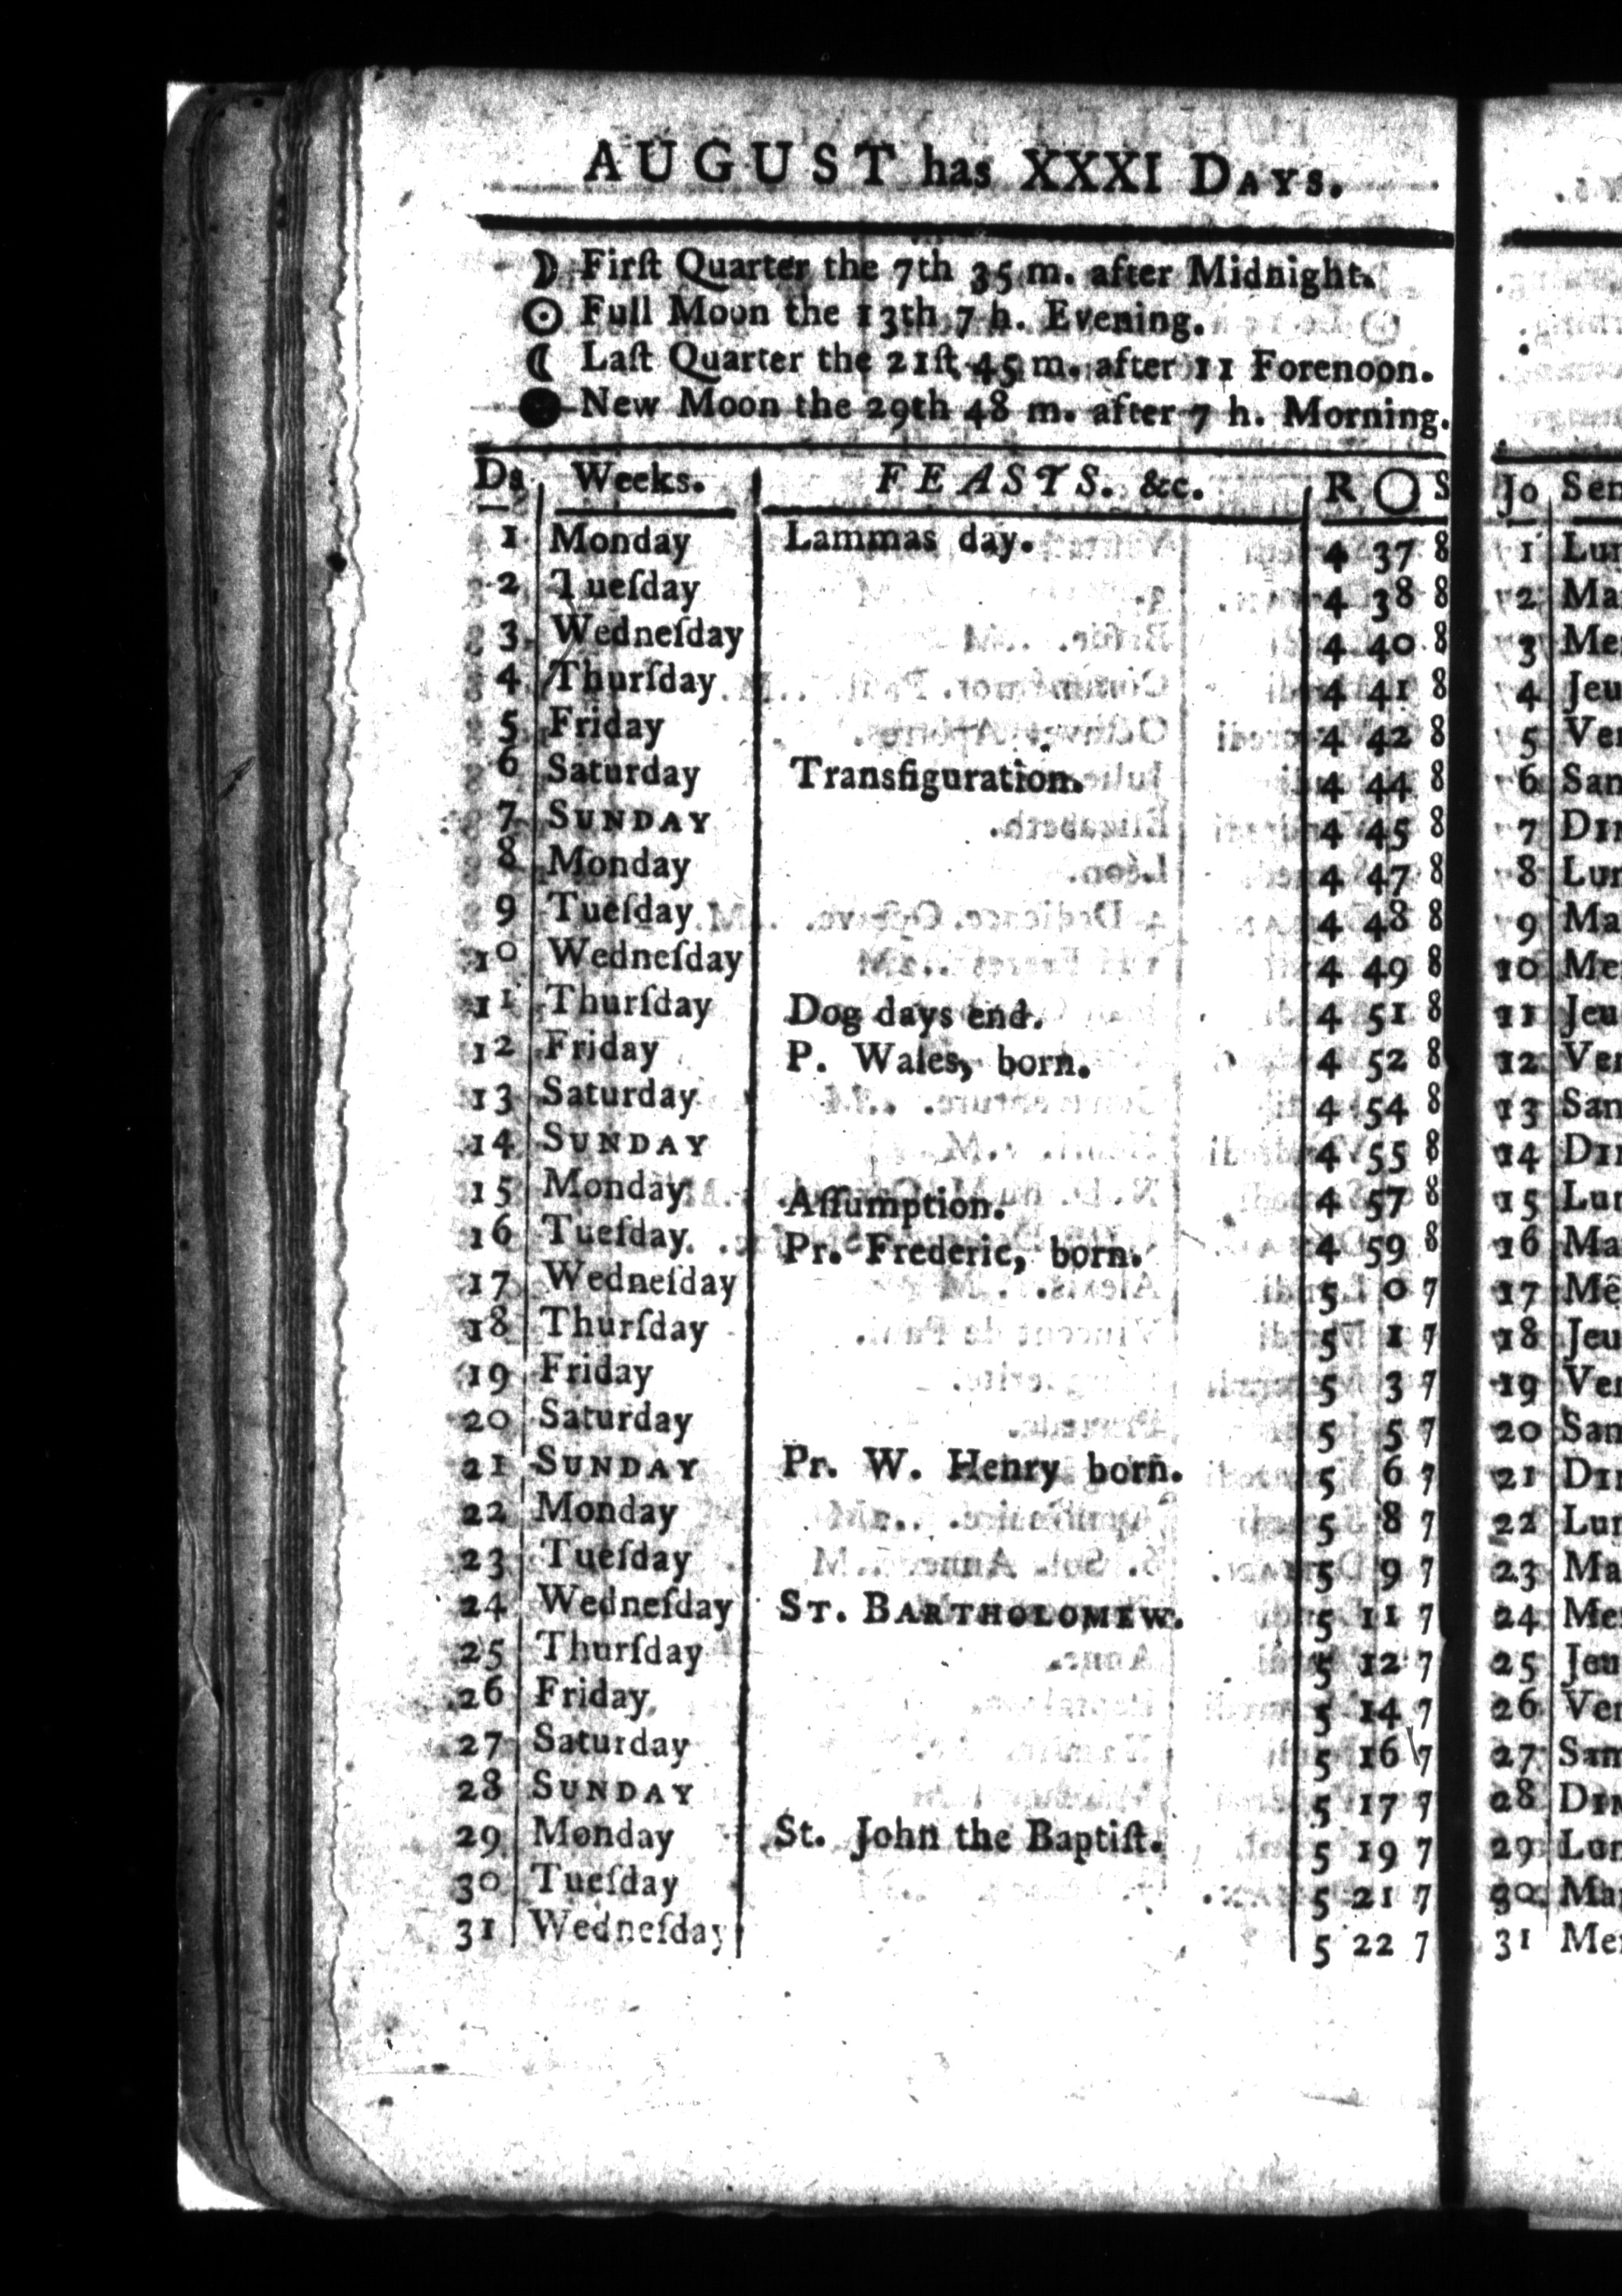 AUGUST has XXXI DAYS.
☽ Firſt Quarter the 7th 35 m. after Midnight.
☉ Full Moon the 13th 7 h. Evening.
☾ Laſt Quarter the 21ſt 45 m. after 11 Forenoon.
● New Moon the 29th 48 m. after 7 h. Morning.
Da Weeks. FEASTS. &c. R ◯ S
1 Monday Lammas day. 4 37 8
2 Tueſday 4 38 8
3 Wedneſday 4 40 8
4 Thurſday 4 41 8
5 Friday 4 42 8
6 Saturday Transfiguration. 4 44 8
7 SUNDAY 4 45 8
8 Monday 4 47 8
9 Tueſday 4 48 8
10 Wedneſday 4 49 8
11 Thurſday Dog days end. 4 51 8
12 Friday P. Wales, born. 4 52 8
13 Saturday 4 54 8
14 SUNDAY 4 55 8
15 Monday Aſſumption. 4 57 8
16 Tueſday Pr. Frederic, born. 4 59 8
17 Wedneſday 5 0 7
18 Thurſday 5 1 7
19 Friday 5 3 7
20 Saturday 5 5 7
21 SUNDAY Pr. W. Henry born. 5 6 7
22 Monday 5 8 7
23 Tueſday 5 9 7
24 Wedneſday ST. BARTHOLOMEW. 5 11 7
25 Thurſday 5 12 7
26 Friday 5 14 7
27 Saturday 5 16 7
28 SUNDAY 5 17 7
29 Monday St. John the Baptiſt. 5 19 7
30 Tueſday 5 21 7
31 Wedneſday 5 22 7
Jo Sem
1 Lun
2 Ma
3 Me
4 Jeu
5 Ven
6 Sam
7 DIM
8 Lun
9 Ma
10 Me
11 Jeu
12 Ven
13 Sam
14 DIM
15 Lun
16 Ma
17 Mê
18 Jeu
19 Ven
20 Sam
21 DIM
22 Lun
23 Ma
24 Me
25 Jeu
26 Ven
27 Sam
28 DIM
29 Lun
30 Ma
31 Mer